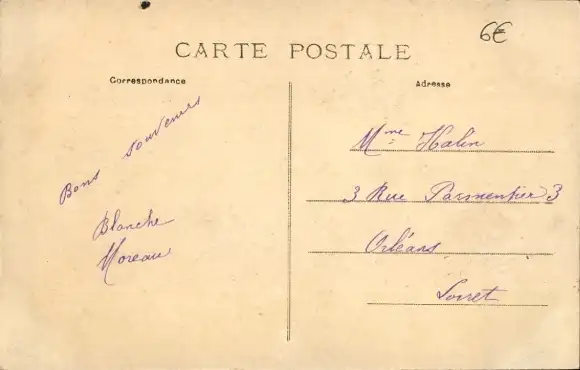 6€
CARTE POSTALE
Correspondance
Adresse
Bons souvenirs
Blanche
Moreau
Mme Halin
3 Rue Parmentier 3
Orléans
Loiret